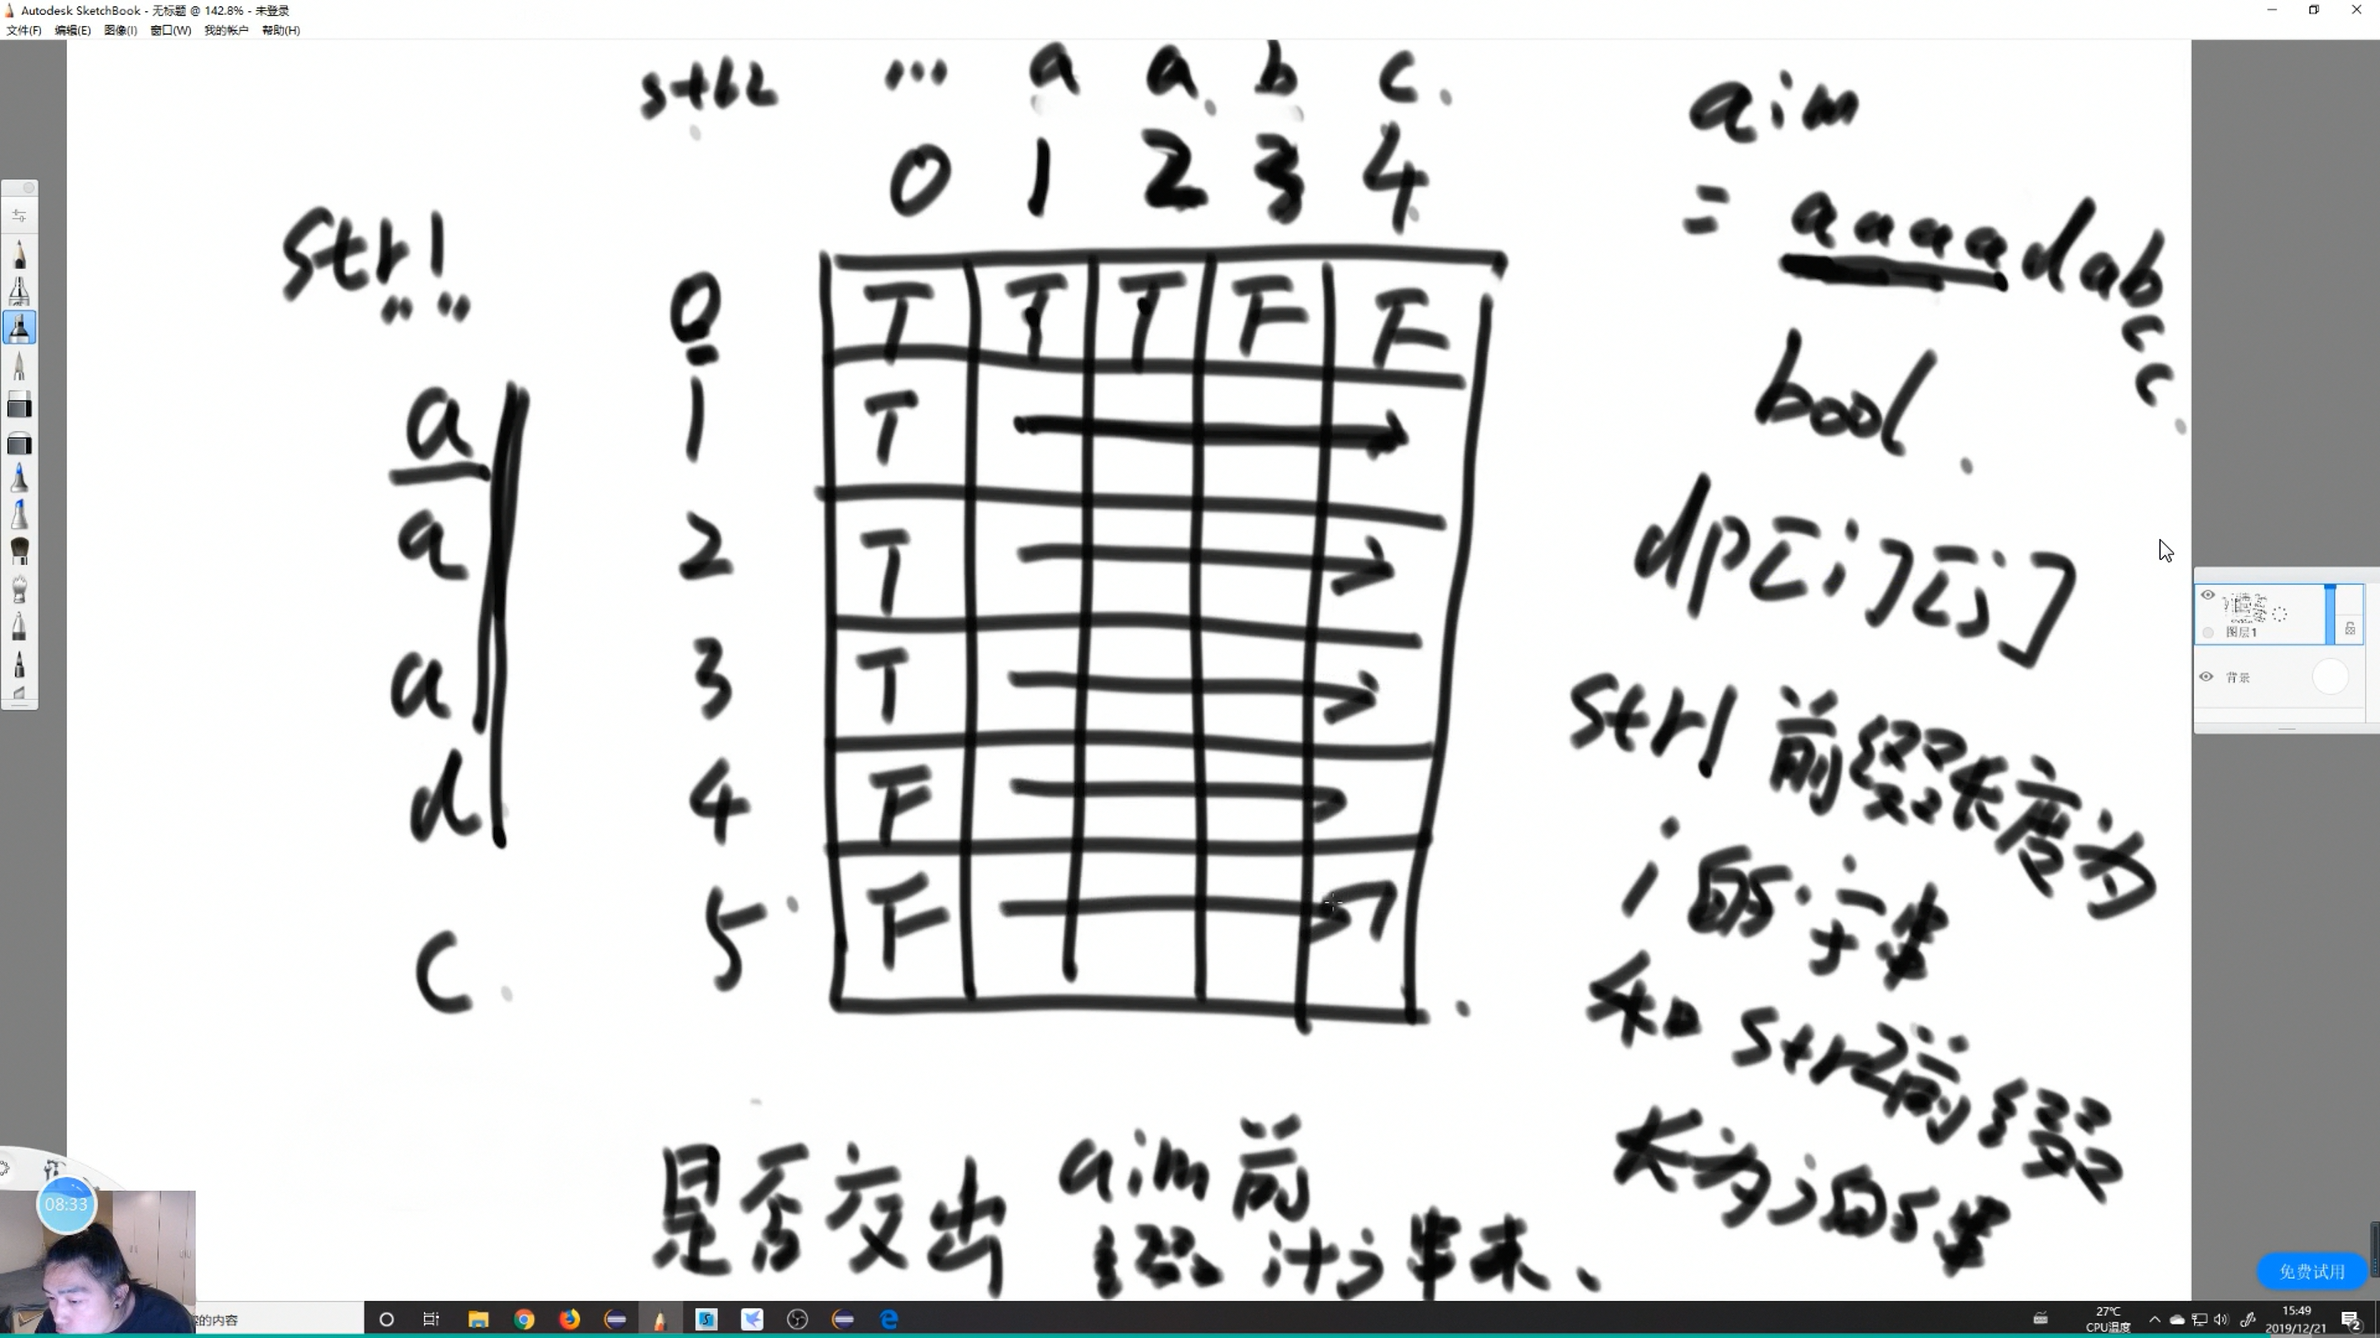 Autodesk SketchBook - 无标题 @ 142.8% - 未登录
文件(F) 编辑(E) 图像(I) 窗口(W) 我的帐户 帮助(H)
str2 ... a a b c
0 1 2 3 4
str1
" "
a
a
a
d
c
0 T T T F F
1 T
2 T
3 T
4 F
5 F
aim
= aaaadabcc
bool
dp[i][j]
str1 前缀长度为
i 的字串
和 str2前缀
长为j的串
是否交出 aim 前
缀 i+j 串来、
图层1
背景
08:33
的内容
免费试用
27℃
CPU温度
15:49
2019/12/21
2